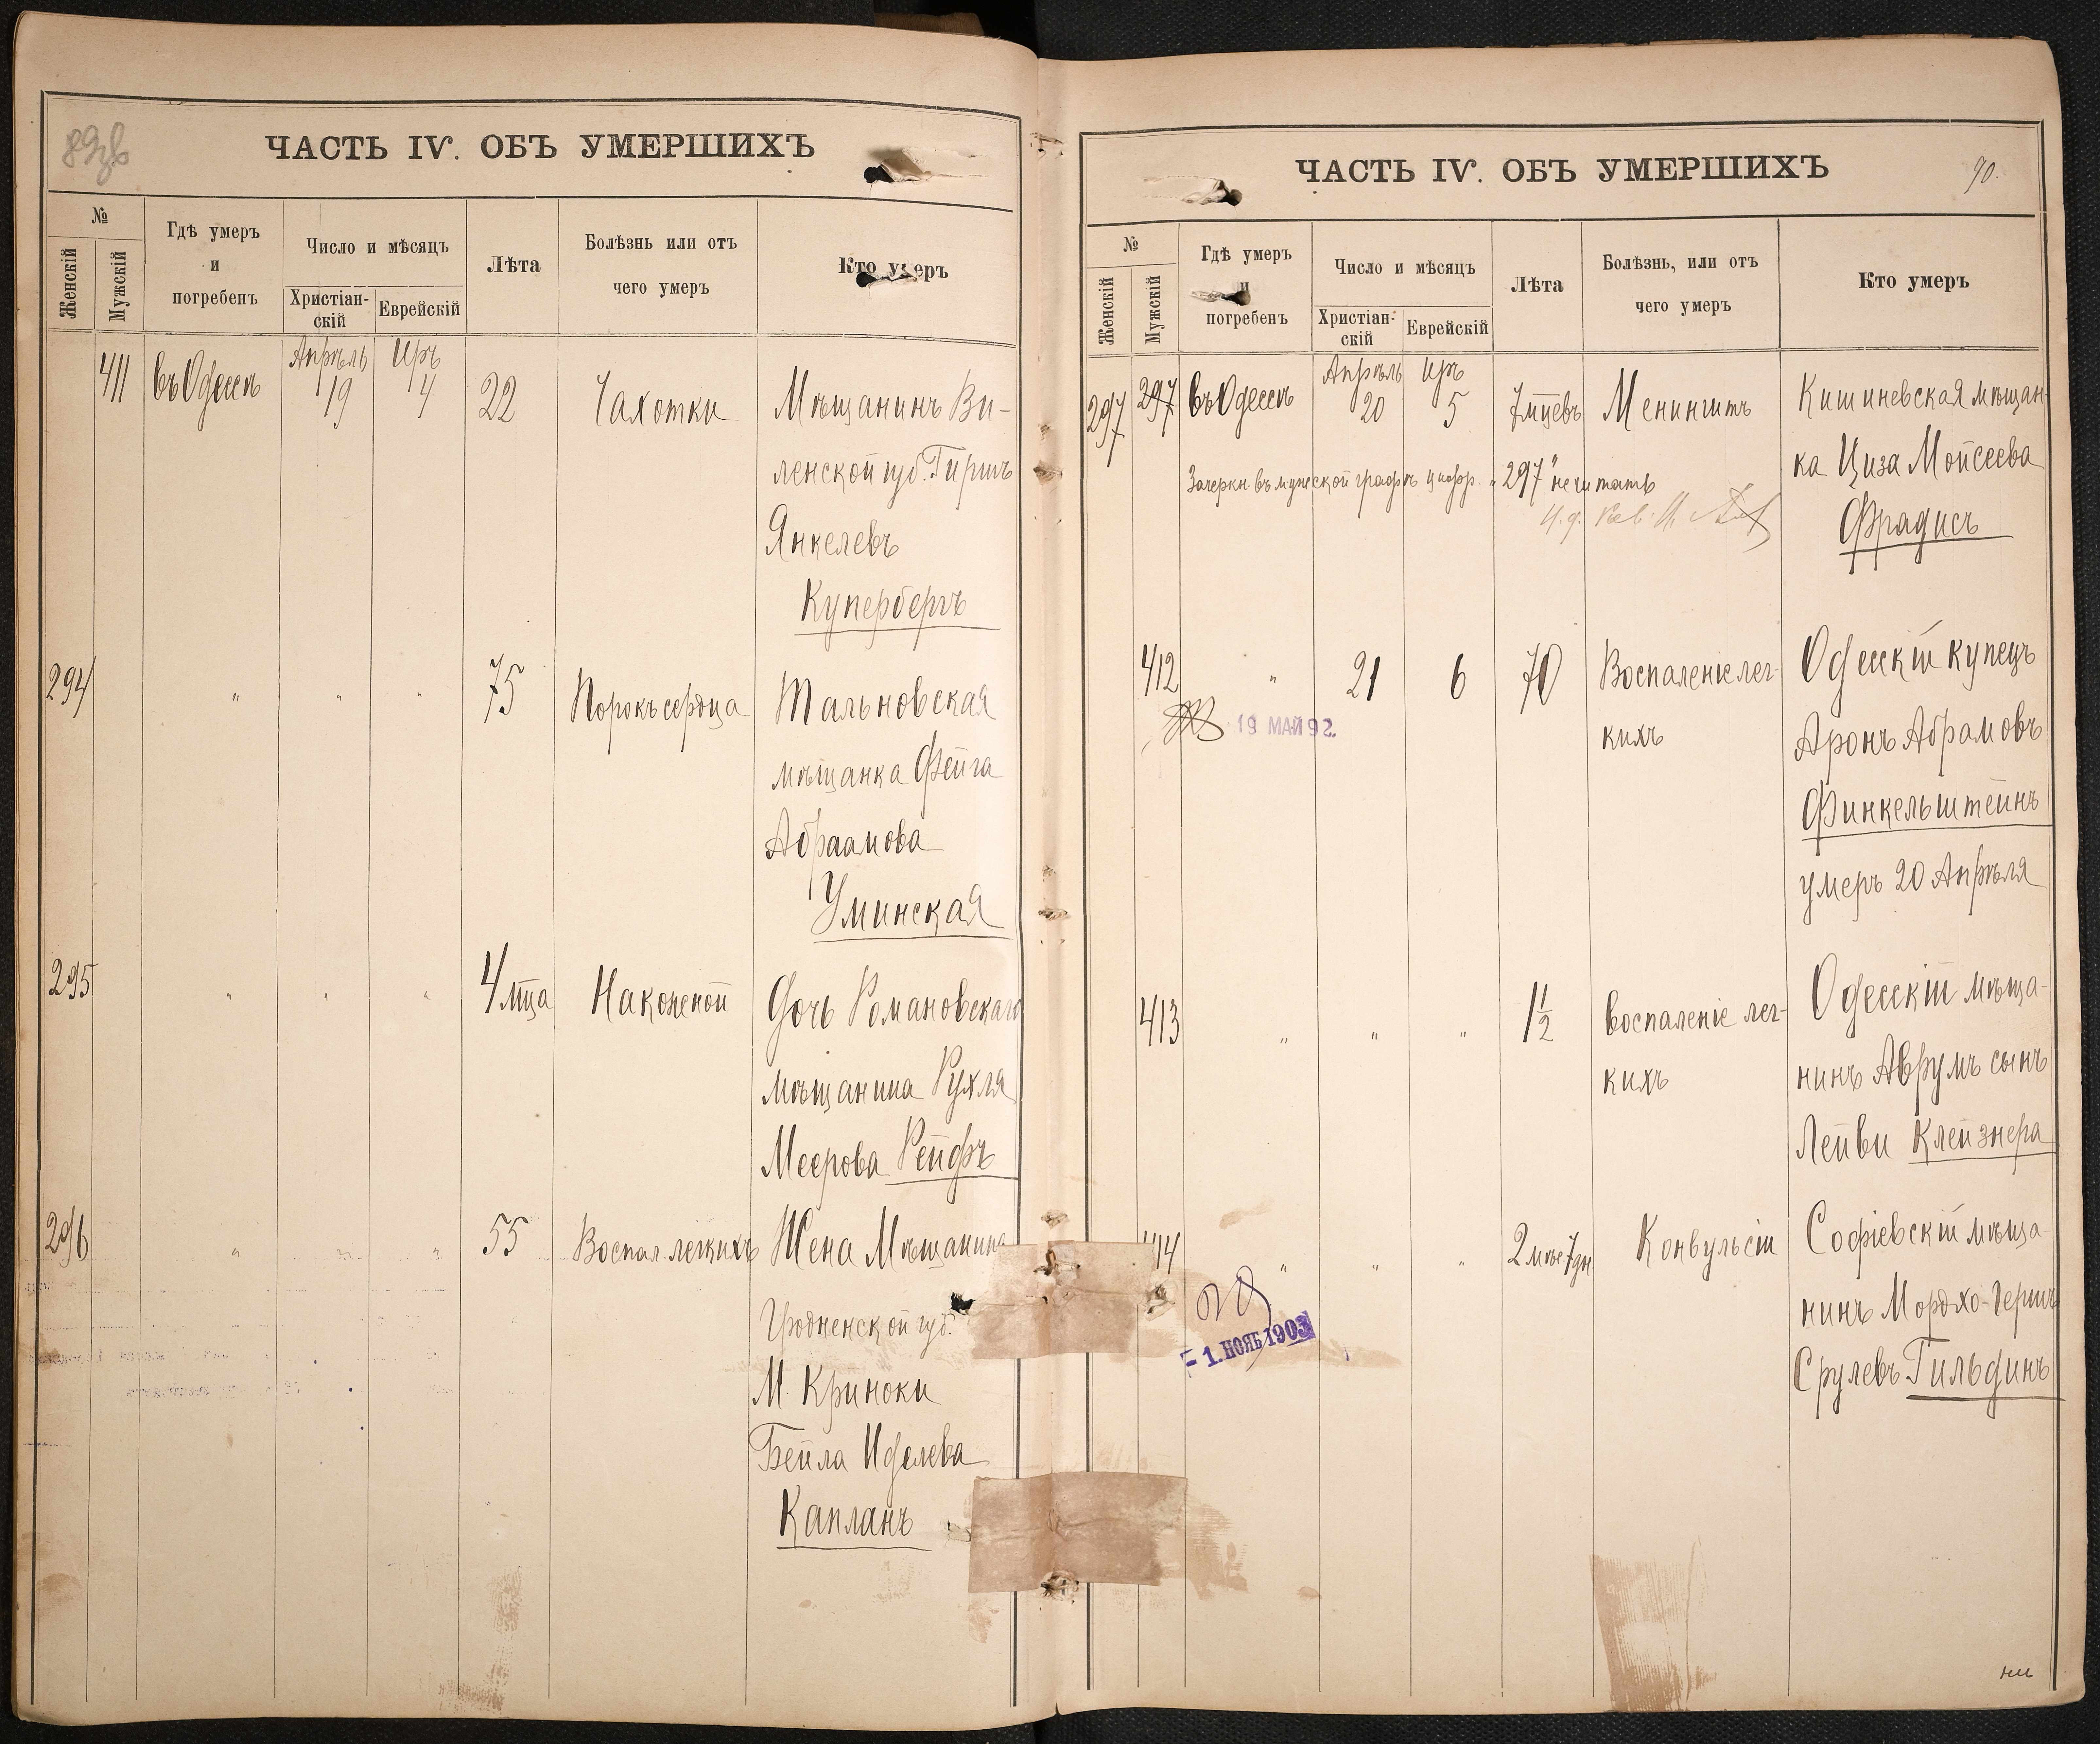 ЧАСТЬ IV. ОБЪ УМЕРШИХЪ
№
Женскій
Мужскій
Гдѣ умеръ
и
погребенъ
Число и мѣсяцъ
Христіан-
скій
Еврейскій
Лѣта
Болѣзнь или отъ
чего умеръ
Кто умеръ
411 въ Одессѣ Апрѣль 19 Иръ 4 22 Чахотки Мѣщанинъ Ви-
ленской губ. Гиршъ
Янкелевъ
Купербергъ
294 " " " 75 Порокъ сердца Тальновская
мѣщанка Фейга
Абраамова
Уминская
295 " " " 4 мца Накожной Дочь Романовскаго
мѣщанина Рухля
Меерова Рейфъ
296 " " " 55 Воспал. легкихъ Жена Мѣщанина
Гродненской губ.
М. Криноки
Бейла Иделева
Капланъ
ЧАСТЬ IV. ОБЪ УМЕРШИХЪ
90.
№
Женскій
Мужскій
Гдѣ умеръ
и
погребенъ
Число и мѣсяцъ
Христіан-
скій
Еврейскій
Лѣта
Болѣзнь, или отъ
чего умеръ
Кто умеръ
297 297 въ Одессѣ Апрѣль 20 Иръ 5 7 мцевъ Менингитъ Кишиневская мѣщан-
ка Циза Мойсеева
Зачеркн. въ мужеской графѣ цифр. „297" не читать
Фрадисъ
412 " 21 6 70 Воспаленіе лег-
кихъ
Одесскій купецъ
Аронъ Абрамовъ
Финкельштейнъ
умеръ 20 Апрѣля
19 МАЙ 92.
413 " " " 1½ воспаленіе лег-
кихъ
Одесскій мѣща-
нинъ Аврумъ сынъ
Лейви Клейзнера
414 " " " 2 мѣс 7 дн Конвульсіи Софіевскій мѣща-
нинъ Мордхо-Герш
Срулевъ Гильдинъ
- 1. НОЯБ 1903